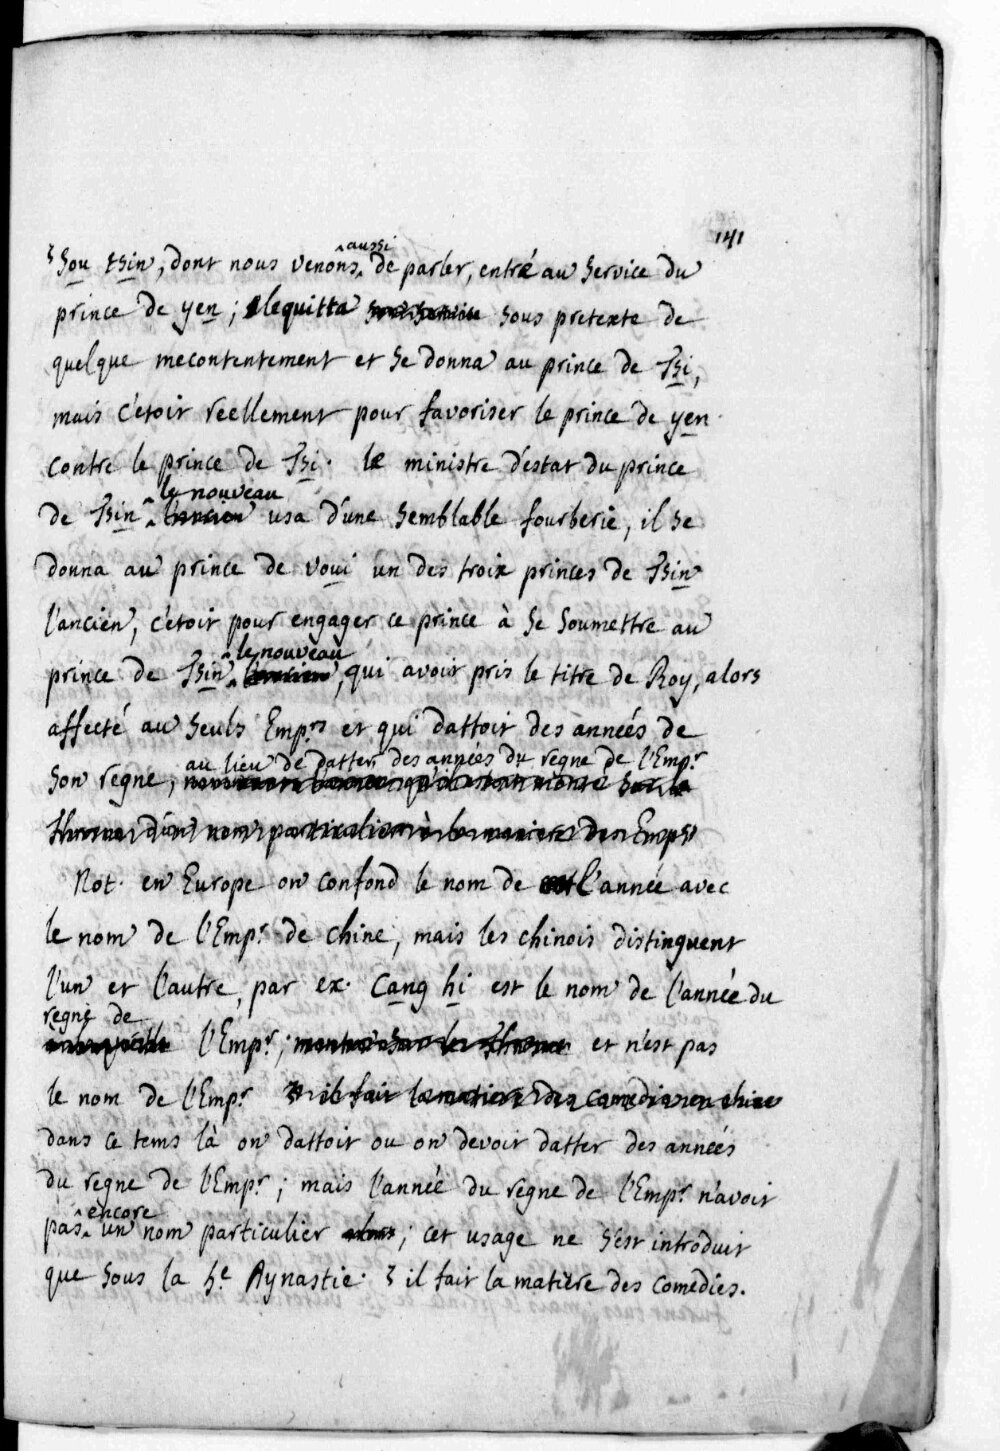 141
3 Sou tsin, dont nous venons aussi de parler, entré au service du
prince de yen; le quitta sous pretexte de
quelque mecontentement et se donna au prince de Tsi,
mais c'etoit reellement pour favoriser le prince de yen
contre le prince de Tsi. le ministre d'estat du prince
de Tsin le nouveau l'ancien usa d'une semblable fourberie, il se
donna au prince de voui un des troix princes de Tsin
l'ancien, c'etoit pour engager ce prince à se soumettre au
prince de Tsin le nouveau l'ancien, qui avoit pris le titre de Roy, alors
affecté au seuls Emprs et qui dattoit des années de
son regne, au lieu de datter des années du regne de l'Empr
Not. en Europe on confond le nom de l'année avec
le nom de l'Empr de chine, mais les chinois distinguent
l'un et l'autre, par ex. Cang hi est le nom de l'année du
regne de l'Empr; et n'est pas
le nom de l'Empr 3 il fait la matiere des comedies en chine
dans ce tems là on dattoit ou on devoit datter des années
du regne de l'Empr; mais l'année du regne de l'Empr n'avoit
pas encore un nom particulier alors; cet usage ne s'est introduit
que sous la 5e Dynastie. 3 il fait la matiere des comedies.